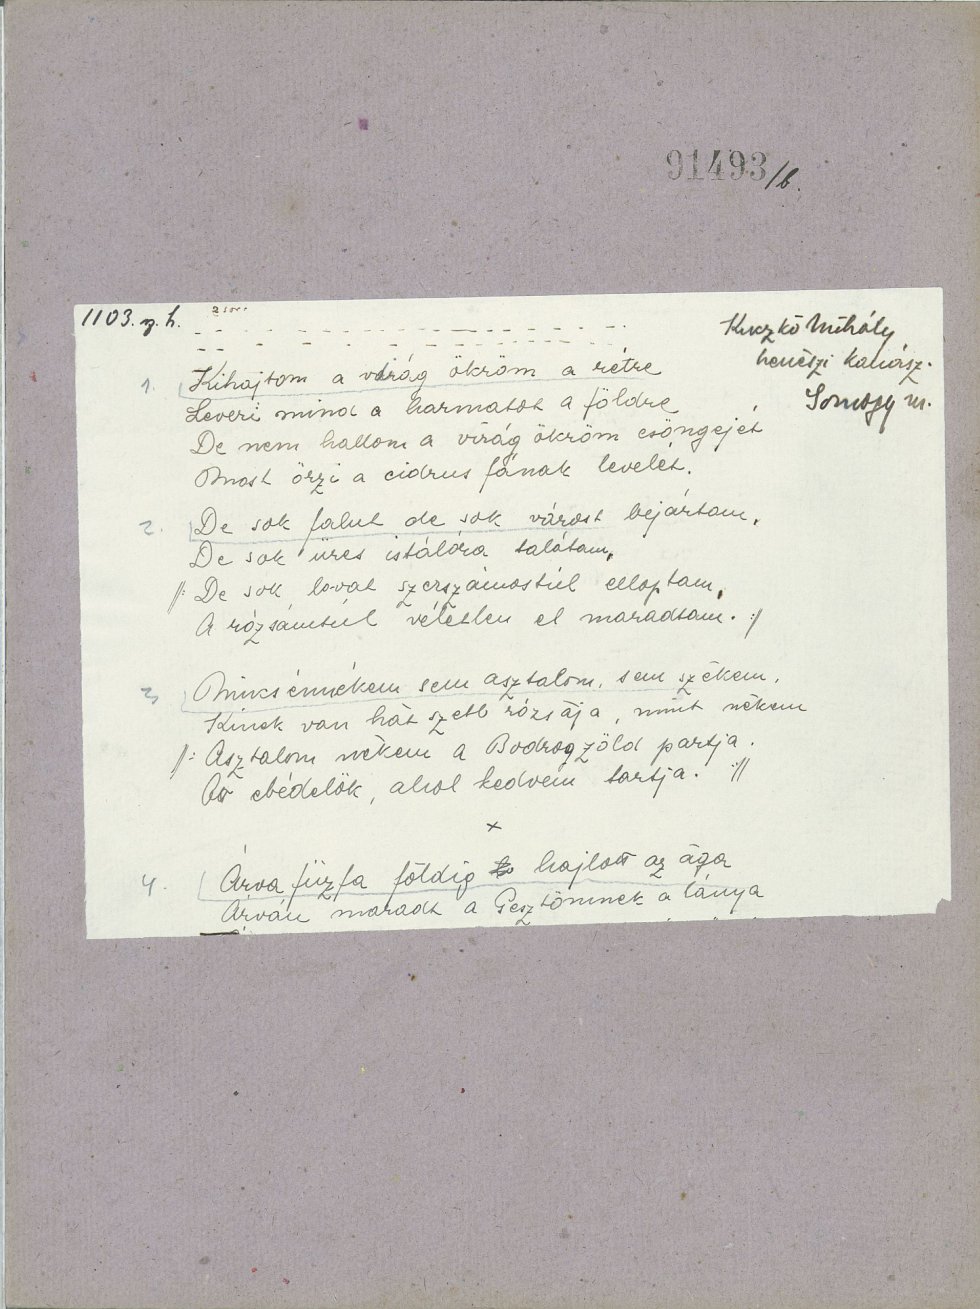 91493/b.
1103. z. h.
2 sor.
Kuczkó Mihály
henészi kanász.
Somogy m.
1. Kihajtom a virág ökröm a rétre
Leveri mind a harmatot a földre
De nem hallom a virág ökröm csöngejét
Most őrzi a cidrus fának levelét.
2. De sok falut de sok várost bejártam,
De sok üres istálóra talátam,
//: De sok lovat szerszámostúl elloptam,
A rózsámtúl véletlen el maradtam. ://
3. Nincs énnékem sem asztalom, sem székem,
Kinek van hát szebb rózsája, mint nékem
//: Asztalom nékem a Bodrogzöld partja.
ebédelök, ahol kedvem tartja. ://
x
4. Árva fűzfa földig hajlott az ága
Árván maradt a Gesztőminek a lánya